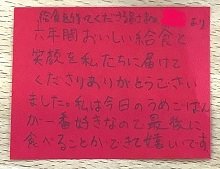 給食を作ってくださる皆さん より
六年間おいしい給食と
笑顔を私たちに届けて
くださりありがとうござい
ました。私は今日のうめごはん
が一番好きなので最後に
食べることができて嬉しいです。